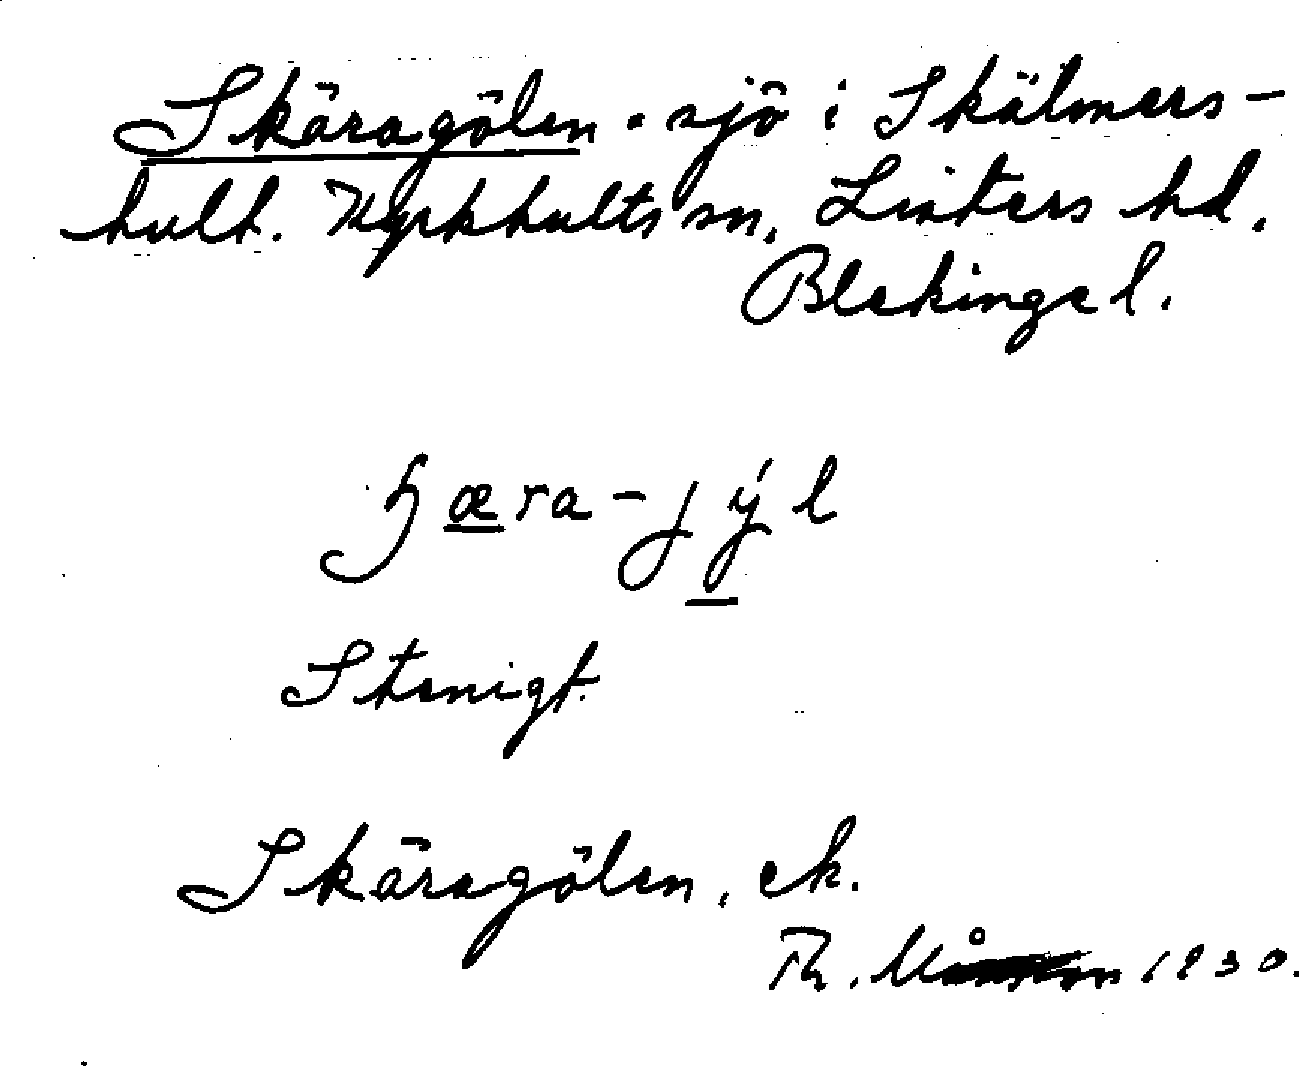 Skäragölen. sjö i Skälmers-
hult. Kyrkhults sn, Listers hd.
Blekinge l.
ɧæra-jýl
Stenigt.
Skäragölen, ek.
Th. 1930.